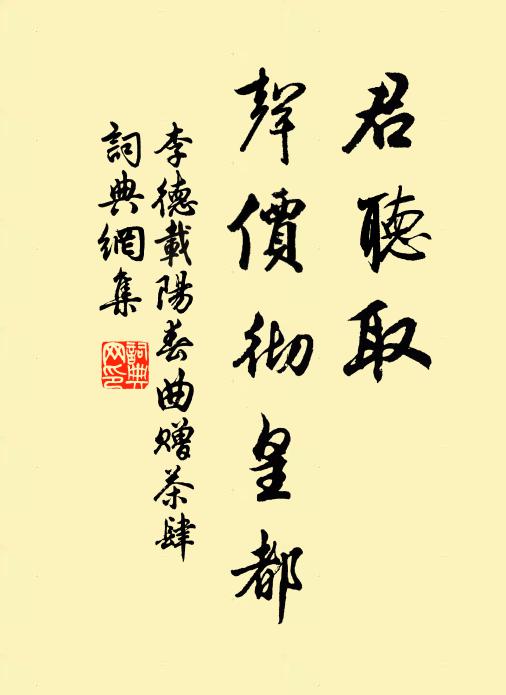 君聽取
聲價彻皇都
李德載陽春曲贈茶肆
詞典網集
詞典網印